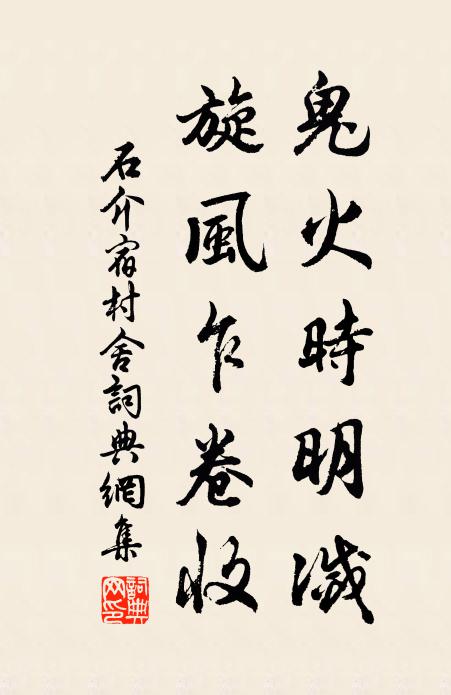 鬼火時明滅
旋風乍卷收
石介宿村舍詞典網集
詞典網印